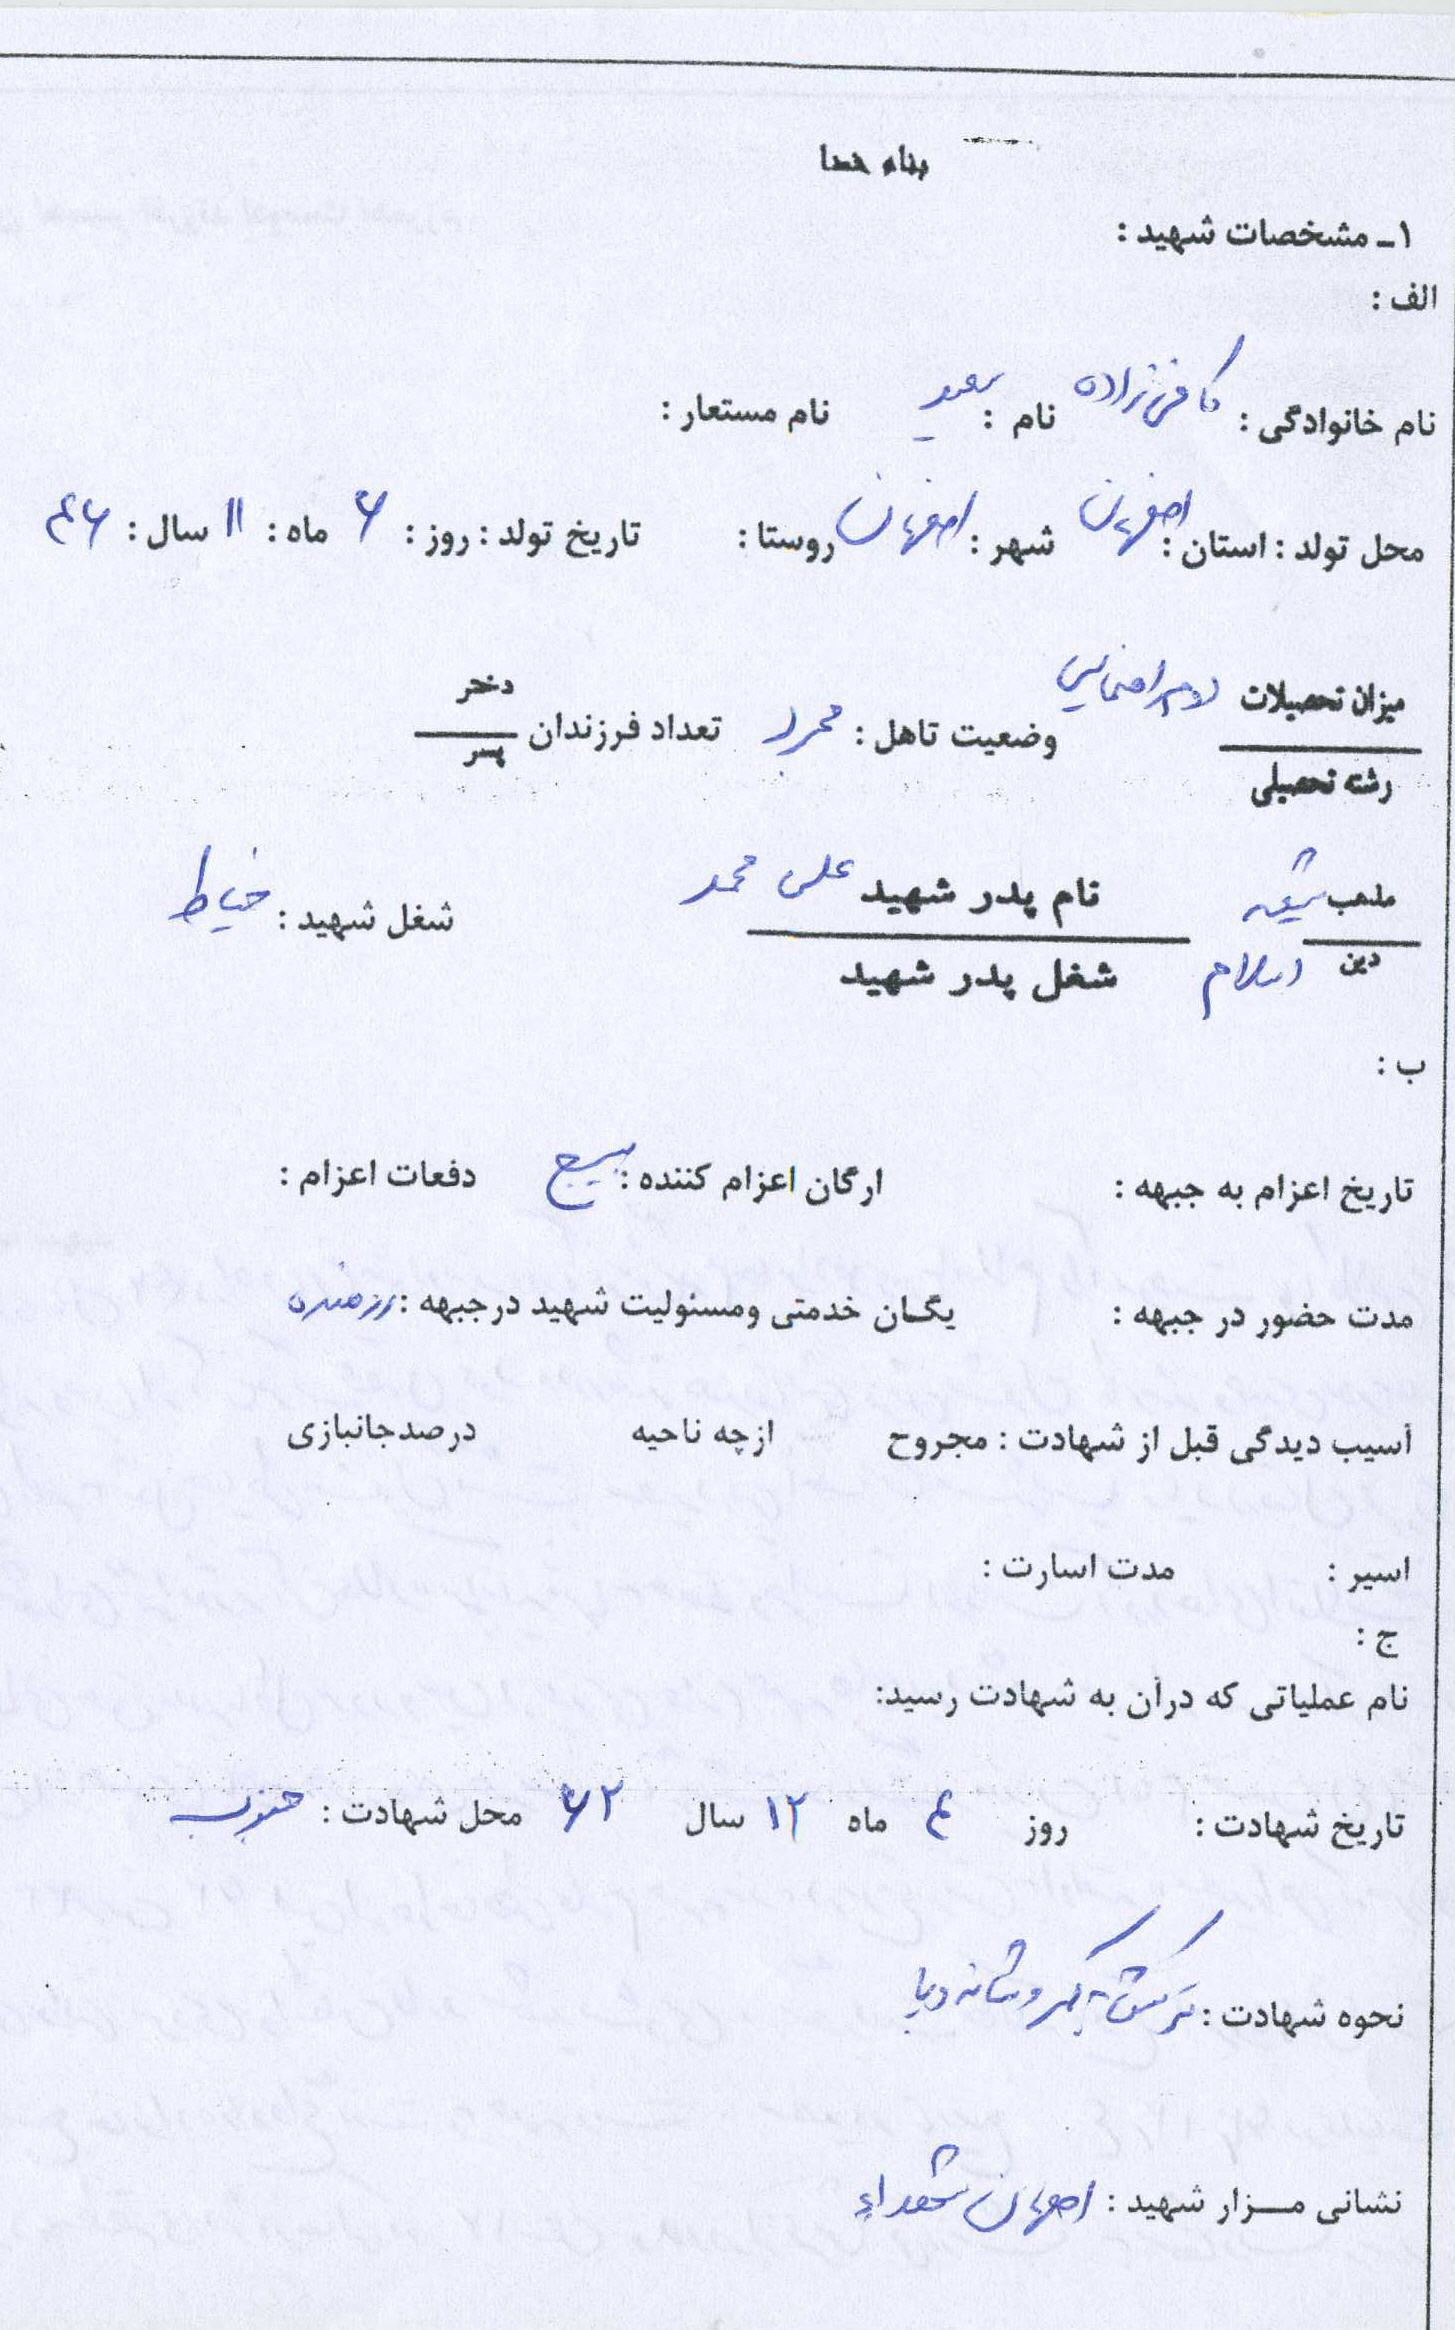 بنام خدا
۱ـ مشخصات شهید :
الف :
نام خانوادگی : کافی زاده نام : سعید نام مستعار :
محل تولد : استان : اصفهان شهر : اصفهان روستا : تاریخ تولد : روز : ۶ ماه : ۱۱ سال : ۴۶
میزان تحصیلات راهنمایی وضعیت تاهل : مجرد تعداد فرزندان دختر
رشته تحصیلی پسر
مذهب شیعه نام پدر شهید علی محمد شغل شهید : خیاط
دین اسلام شغل پدر شهید
ب :
تاریخ اعزام به جبهه : ارگان اعزام کننده : بسیج دفعات اعزام :
مدت حضور در جبهه : یگان خدمتی ومسئولیت شهید درجبهه : رزمنده
آسیب دیدگی قبل از شهادت : مجروح ازچه ناحیه درصدجانبازی
اسیر : مدت اسارت :
ج :
نام عملیاتی که درآن به شهادت رسید:
تاریخ شهادت : روز ۴ ماه ۱۲ سال ۶۲ محل شهادت : جنوب
نحوه شهادت : ترکش به کمر و شانه و پا
نشانی مـزار شهید : اصفهان شهداء